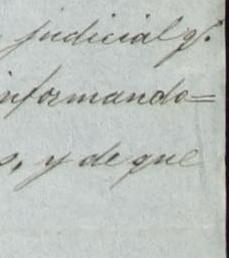 judicial qe.
informando=
s, y de que